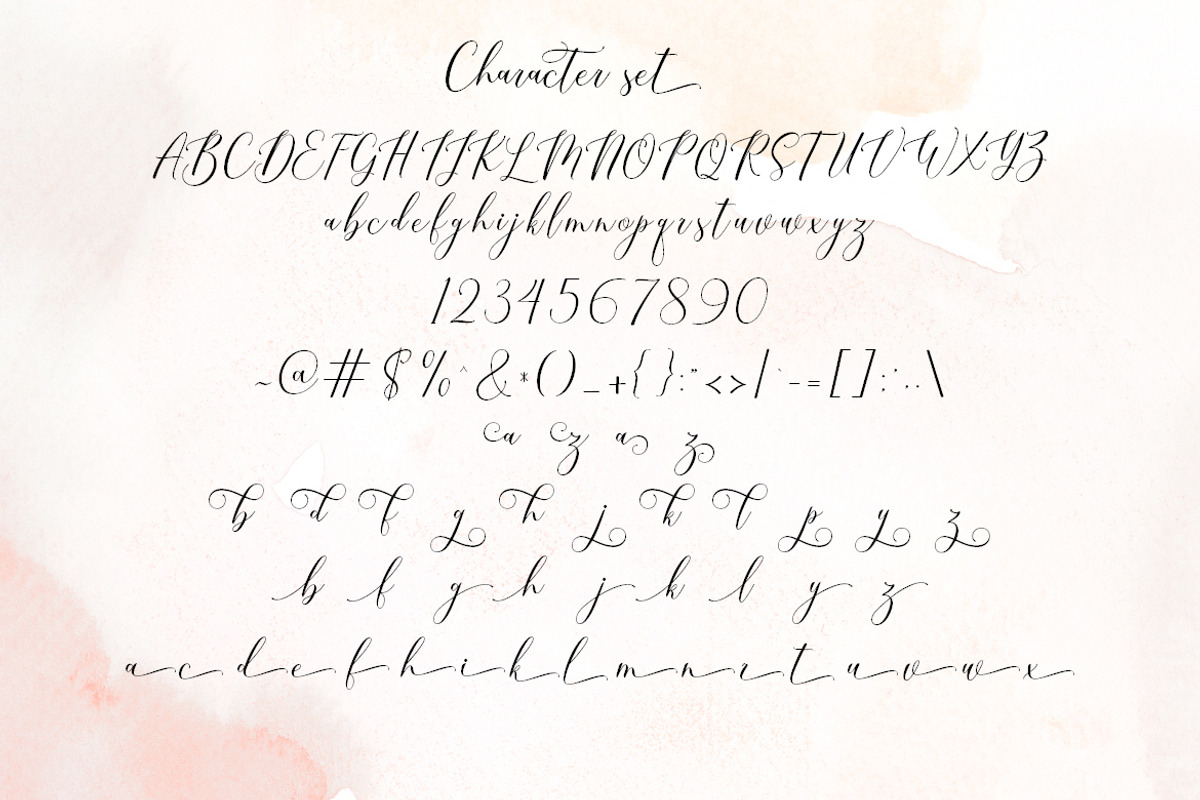 Character set
ABCDEFGHIJKLMNOPQRSTUVWXYZ
abcdefghijklmnopqrstuvwxyz
1234567890
~@#$%^&*()_+{}:"<>|`-=[];',.\
a z a z
b d f g h j k l p y z
b f g h j k l y z
a c d e f h i k l m n r t u v w x